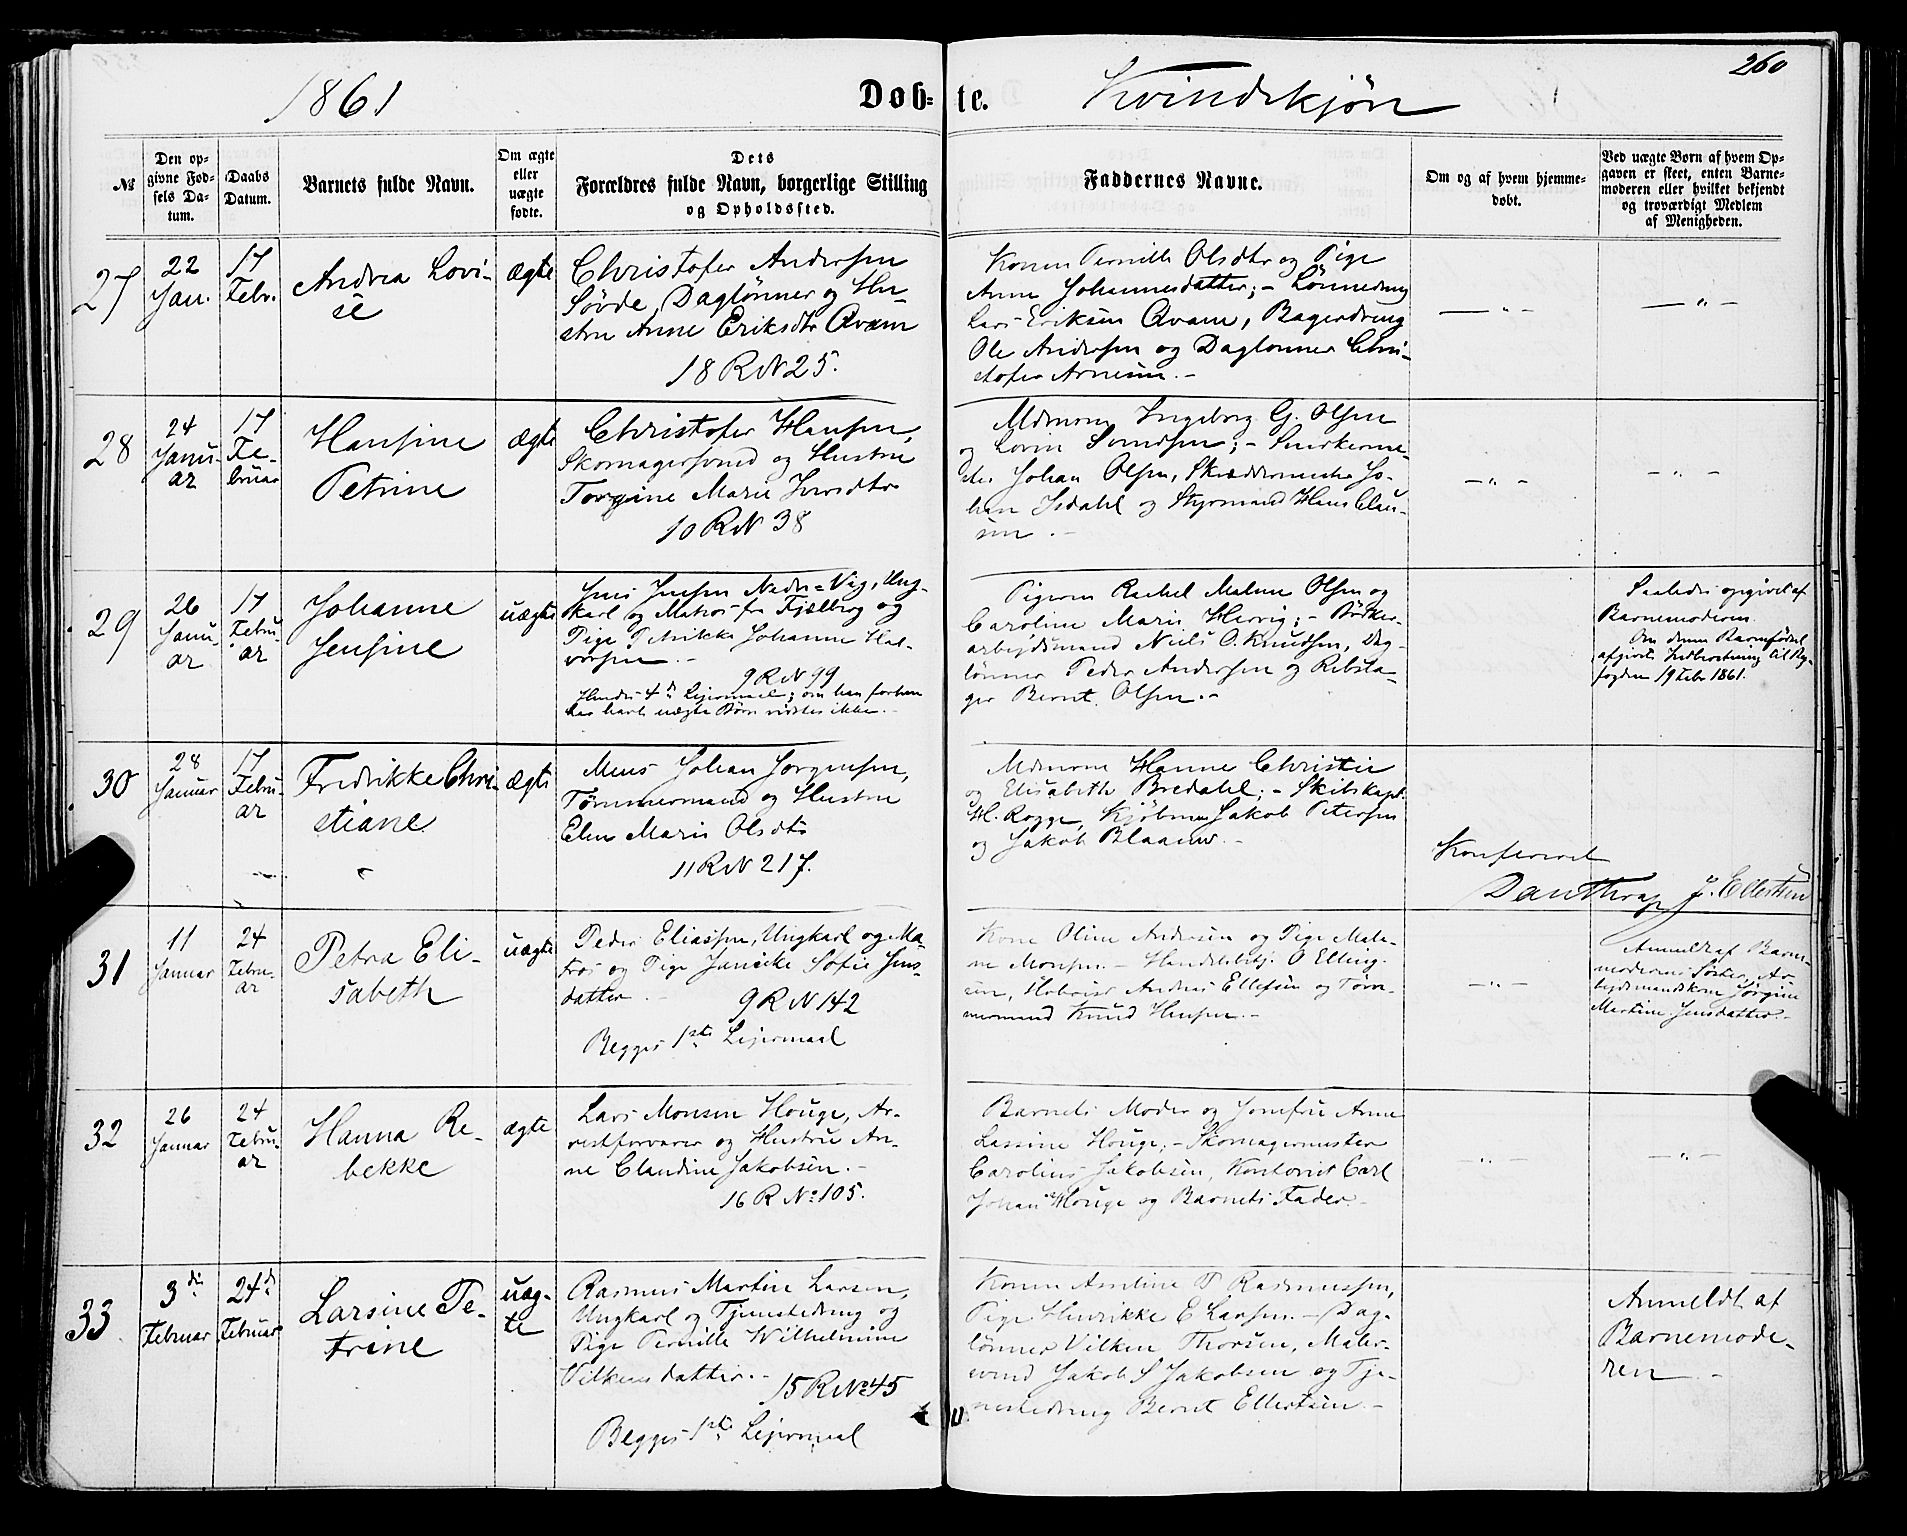 260
1861
Døb-te.
Kvindekjøn
№
Den op-
givne Fød-
sels Da-
tum.
Daabs
Datum.
Barnets fulde Navn.
Om ægte
eller
uægte
fødte.
Dets
Forældres fulde Navn, borgerlige Stilling
og Opholdssted.
Faddernes Navne.
Om og af hvem hjemme-
døbt.
Ved uægte Børn af hvem Op-
gaven er skeet, enten Barne-
moderen eller hvilket bekjendt
og troværdigt Medlem
af Menigheden.
27
22
Jan.
17
Febr.
Andrea Lovi-
se
ægte
Christofer Andersen
Søvde, Daglønner og Hu-
stru Anne Eriksdtr Qvam
18 R N 25.
Konen Pernille Olsdtr og Pige
Anne Johannesdatter; -
Lars Eriksen Qvam, Bagerdreng
Ole Andersen og Daglønner Chri-
stofer Arnesen. -
— " -
— " -
28
24
Janu-
ar
17
Fe-
bruar
Hansine
Petrine
ægte
Christofer Hansen,
Skomagersvend og Hustru
Torgine Marie Iversdtr
10 R N 38
Mdmerne Ingeborg G. Olsen
og Lovise Svendsen; - Snedkerme-
ster Johan Olsen, Skræddermester Jo-
han Isdahl og Styrmand Hans Clau-
sen. -
— " -
— " -
29
26
Janu-
ar
17
Febru-
ar
Johanne
Jensine
uægte
Jens Jensen Nedre-Vig, Ung-
karl og Matros fra Fjelberg og
Pige Petrikke Johanne Hal-
vorsen. -
9 R N 99
Hendes 4de Leiermaal; om han forhen
har havt uægte Børn vidstes ikke. -
Pigerne Rachel Malene Olsen og
Caroline Marie Hervig; - Bødker-
arbeidsmand Niels O. Knudsen, Dag-
lønner Peder Andersen og Rebsla-
ger Bernt Olsen. -
Saaledes opgivet af
Barnemoderen.
Om denne Barnefødsel
afgivet Indberetning til By-
fogden 19 Febr 1861.
30
28
Januar
17
Febru-
ar
Fredrikke Chri-
stiane
ægte
Mens Johan Jørgensen,
Tømmermand og Hustru
Elen Marie Olsdtr
11 R N 217.
Mdmerne Hanne Christie
og Elisabeth Bredahl; - Skibskapt.
H. Rogge, Kjøbmn Jakob Petersen
og Jakob Blaauw. -
Konfereret
Danthrap J. Ellertsen
31
11
Januar
24
Febru-
ar
Petra Eli-
sabeth
uægte
Peder Eliassen, Ungkarl og Ma-
tros og Pige Janike Sofie Jens-
datter. -
9 R N 142
Begges 1ste Leiermaal
Kone Oline Andersen og Pige Male-
ne Monsen. - Handelsbetj. O Elling-
sen, Andreas Ellefsen og Tøm-
mermand Knud Hansen. -
— " -
Anmeldt af Barne-
moderens Søster, Ar-
beidsmandskone Jørgine
Martine Jensdatter. -
32
26
Januar
24
Febru-
ar
Hanna Re-
bekke
ægte
Lars Monsen Houge, Ar-
restforvarer og Hustru An-
ne Claudine Jakobsen. -
16 R No 105.
Barnets Moder og Jomfru Anne
Lassine Houge; - Skomagermester
Carolius Jakobsen, Kontorist Carl
Johan Houge og Barnets Fader. -
— " -
— " -
33
3die
Februar
24de
Februar
Larsine Pe-
trine
uæg-
te
Rasmus Martin Larsen,
Ungkarl og Tjenestedreng og
Pige Pernille Wilhelmine
Vilkensdatter. -
15 R No 45
Begges 1ste Leiermaal
Konen Aneline P Rasmussen,
Pige Henrikke E Larsen. - Dag-
lønner Vilken Thorsen, Maler-
svend Jakob S Jakobsen og Tje-
nestedreng Bernt Ellertsen. -
Anmeldt af
Barnemode-
ren -